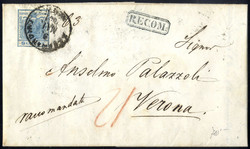 RECOM.
Signor
Anselmo Palazzoli
raccomandata
Verona